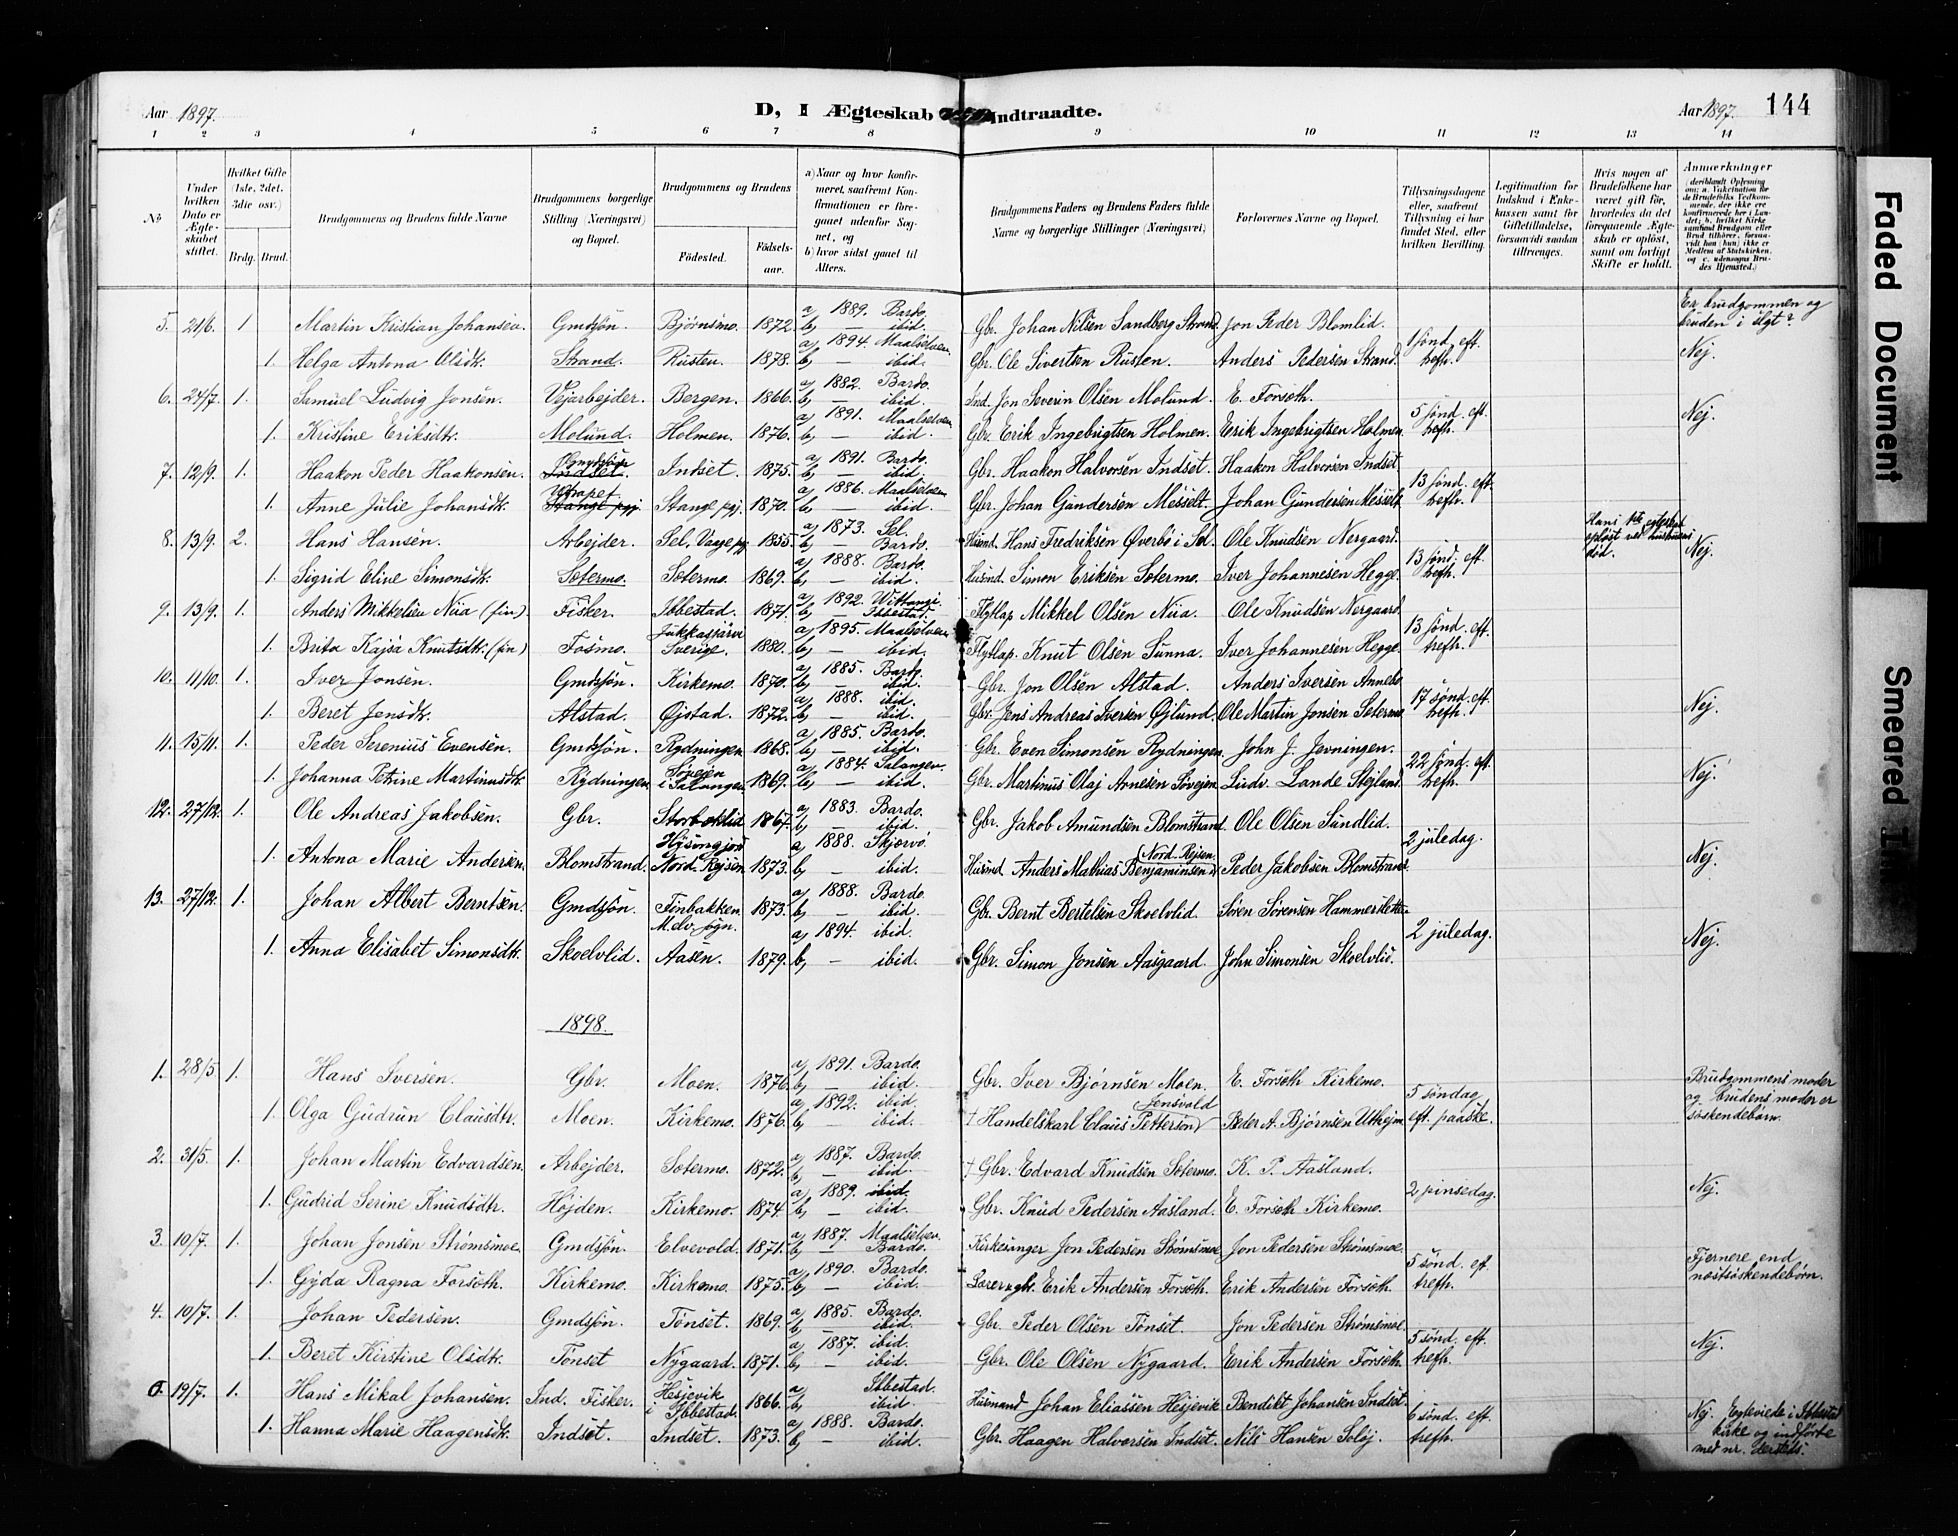 Aar 1897.
D, I Ægteskab Indtraadte.
Aar 1897. 144
1 2 3 4 5 6 7 8 9 10 11 12 13 14
№
Under hvilken Dato er Ægteskabet stiftet.
Hvilket Gifte (1ste, 2det, 3die osv.)
Brdg. Brud.
Brudgommens og Brudens fulde Navne
Brudgommens borgerlige Stilling (Næringsvei) og Bopæl.
Brudgommens og Brudens
Fødested.
Fødselsaar.
a) Naar og hvor konfirmeret, saafremt Konfirmationen er foregaaet udenfor Sognet, og
b) hvor sidst gaaet til Alters.
Brudgommens Faders og Brudens Faders fulde Navne og borgerlige Stillinger (Næringsvei)
Forlovernes Navne og Bopæl.
Tillysningsdagene eller, saafremt Tillysning ei har fundet Sted, efter hvilken Bevilling.
Legitimation for Indskud i Enkekassen samt for Giftetilladelse, forsaavidt saadan tiltrænges.
Hvis nogen af Brudefolkene har været gift før, hvorledes da det foregaaende Ægteskab er opløst, samt om lovligt Skifte er holdt.
Anmærkninger
(deriblandt Oplysning om: a. Vakcination for de Brudefolks Vedkommende, der ikke ere konfirmerede her i Landet; b. hvilket Kirkesamfund Brudgom eller Brud tilhører, forsaavidt han (hun) ikke er Medlem af Statskirken, og c. udensogns Brudes Hjemsted.)
5. 21/6. 1 Martin Kristian Johansen. Gmdsøn. Bjørnsmo. 1872. a) 1889. Bardo. b) — ibid. Gbr. Johan Nilsen Sandberg Strand. Jon Peder Blomlid. Er brudgommen og bruden i slgt?
1. Helga Antona Olsdtr. Strand. Rusten. 1878. a) 1894. Maalselven. b) — ibid. Gbr. Ole Sivertsen Rusten. Anders Pedersen Strand. 1 sønd. eft. trefh. Nej.
6. 24/7. 1. Samuel Ludvig Jonsen. Vejarbejder. Bergen. 1866. a) 1882. Bardo. b) — ibid. Ind. Jon Severin Olsen Molund. E. Forsøth.
1. Kristine Eriksdtr. Molund. Holmen. 1876. a) 1891. Maalselven. b) — ibid. Gbr. Erik Ingebrigtsen Holmen. Erik Ingebrigtsen Holmen. 5 sønd. eft. trefh. Nej.
7. 12/9. 1. Haakon Peder Haakonsen. Gmdsøn Indset. Indset. 1875. a) 1891. Bardo. b) — ibid. Gbr. Haakon Halvorsen Indset. Haakon Halvorsen Indset.
1. Anne Julie Johansdtr. Stange pgj. Stange pgj. 1870. a) 1886. Maalselven. b) — ibid. Gbr. Johan Gundersen Messelt. Johan Gundersen Messelt. 13 sønd. eft. trefh.
8. 13/9. 2. Hans Hansen. Arbejder. Sel, Vaage pgj. 1855. a) 1873. Sel. b) — Bardo. Husmd. Hans Fredriksen Øverbø i Sel. Ole Knudsen Nergaard. Hans 1ste egteskab opløst ved hustruens død. Nej.
1. Sigrid Elive Simonsdtr. Setermo. Setermo. 1869. a) 1888. Bardo. b) — ibid. Husmd. Simon Eriksen Setermo. Iver Johannesen Hegge. 13 sønd. eft. trefh.
9. 13/9. 1. Anders Mikkelsen Nia (fin) Fisker. Ibbestad. 1871. a) 1892. Wittangi. b) — Ibbestad. Flytlap Mikkel Olsen Nia. Ole Knudsen Nergaard.
1. Brita Kajsa Knutsdtr. (fin) Fosmo. Jukkasjärvi Sverige. 1880. a) 1895. Maalselven. b) — ibid. Flytlap. Knut Olsen Sunna. Iver Johannesen Hegge. 13 sønd. eft. trefh.
10. 11/10. 1. Iver Jonsen. Gmdsøn. Kirkemo. 1870. a) 1885. Bardo. b) — ibid. Gbr. Jon Olsen Alstad. Anders Iversen Annebo.
1. Beret Jensdtr. Alstad. Øjstad. 1872. a) 1888. ibid. b) — ibid. Gbr. Jens Andreas Iversen Øjlund. Ole Martin Jonsen Setermo. 17 sønd. eft. trefh. Nej.
11. 15/11. 1. Peder Serenius Evensen. Gmdsøn. Rydningen. 1868. a) 1885. Bardo. b) — ibid. Gbr. Even Simonsen Rydningen. John J. Jevningen.
1. Johanna Petrine Martinusdtr. Rydningen. Løvejen i Salangen. 1869. a) 1884. Salangen. b) — ibid. Gbr. Martinus Olaj Arnesen Løvejen. Ludv. Lande Stejland. 22 sønd. eft. trefh. Nej.
12. 27/12. 1. Ole Andreas Jakobsen. Gbr. Storbeklid 1867. a) 1883. Bardo. b) — ibid. Gbr. Jakob Amundsen Blomstrand. Ole Olsen Sundlid.
1. Antona Marie Andersen. Blomstrand. Nord-Rejsen 1873. a) 1888. Skjærvø. b) — ibid. Husmd. Anders Mathias Benjaminsen (Nord-Rejsen). Peder Jakobsen Blomstrand. 2 juledag. Nej.
13. 27/12. 1. Johan Albert Berntsen. Gmdsøn. Finbakken M.elv. sogn. 1873. a) 1888. Bardo. b) — ibid. Gbr. Bernt Bertelsen Skoelvlid. Søren Sørensen Hammerslette.
1. Anna Elisabet Simonsdtr. Skoelvlid. Aasen. 1879. a) 1894. ibid. b) — ibid. Gbr. Simon Jonsen Aasgaard. John Simonsen Skoelvlid. 2 juledag. Nej.
1898.
1. 28/5. 1. Hans Iversen. Gbr. Moen. 1876. a) 1891. Bardo. b) — ibid. Gbr. Iver Bjørnsen Moen. E. Forsøth Kirkemo. Brudgommens moder og brudens moder er søskendebørn.
1. Olga Gudrun Clausdtr. Moen. Kirkemo. 1876. a) 1892. ibid. b) — ibid. † Handelskarl Claus Petterson Jensvold Peder A. Bjørnsen Utheim. 5 søndag eft. paaske.
2. 31/5. 1. Johan Martin Edvardsen. Arbejder. Setermo. 1872. a) 1887. Bardo. b) — ibid. † Gbr. Edvard Knudsen Setermo. K. P. Aasland.
1. Gudrid Serine Knudsdtr. Højden. Kirkemo. 1874. a) 1889. ibid. b) — ibid. Gbr. Knud Pedersen Aasland. E. Forsøth Kirkemo. 2 pinsedag. Nej.
3. 10/7. 1. Johan Jonsen Strømsmoe. Gmdsøn. Elvevold. 1871. a) 1887. Maalselven. b) — Bardo. Kirkesanger Jon Pedersen Strømsmoe. Jon Pedersen Strømsmoe.
1. Gyda Ragna Forsøth. Kirkemo. Kirkemo. 1875. a) 1890. Bardo. b) — ibid. Lærer og gbr. Erik Andersen Forsøth. Erik Andersen Forsøth. 5 sønd. eft. trefh. Fjernere end næstsøskendebørn.
4. 10/7. 1. Johan Pedersen. Gmdsøn. Tønset. 1869. a) 1885. Bardo. b) — ibid. Gbr. Peder Olsen Tønset. Jon Pedersen Strømsmoe.
1. Beret Kirstine Olsdtr. Tønset Nygaard. 1871. a) 1887. ibid. b) — ibid. Gbr. Ole Olsen Nygaard. Erik Andersen Forsøth. 5 sønd. eft. trefh. Nej.
19/7. 1. Hans Mikal Johansen. Ind. Fisker. Hesjevik i Ibbestad. 1866. a) Ibbestad. b) ibid. Husmand Johan Eliassen Hesjevik. Bendikt Johansen Indset.
1. Hanna Marie Haagensdtr. Indset. Indset. 1873. a) 1888. Bardo. b) — ibid. Gbr. Haagen Halvorsen Indset. Nils Hansen Soløj. 6 sønd. eft. trefh. Nej. Egteviede i Ibbestad kirke og indførte med nr. dersteds.
Faded Document
Smeared